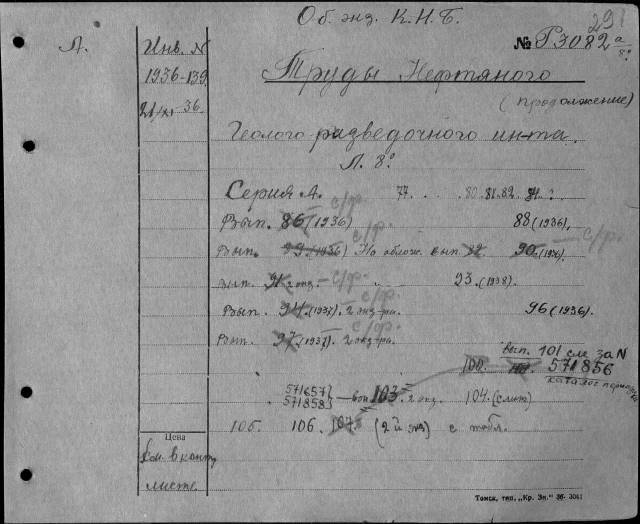 Об. экз. К.Н.Б.
291
А.
Инв. №
1936-139
21/XI 36
№ Р3082 а/8°
Труды Нефтяного
(продолжение)
Геолого-разведочного ин-та.
Л. 8°
Серия А. 77. 80. 81. 82.
с/ф.
Вып. 86 (1936) 88 (1936).
с/ф.
Вып. 99 (1936) На облож. вып. 90. (1936) — с/ф.
Вып. 91 2 экз. — с/ф. 93. (1938)
с/ф.
Вып. 94. (1937). 2 экз-ра. 96 (1936)
с/ф.
Вып. 97. (1937). 2 экз-ра.
вып. 101 см. за N
100. 571856
каталог
571857} — вып 103. 2 экз. 104. (слит)
571858}
105. 106. 107. (2й экз) с табл.
Цена
См. в конт.
листе
Томск, тип. „Кр. Зн." 36-3041